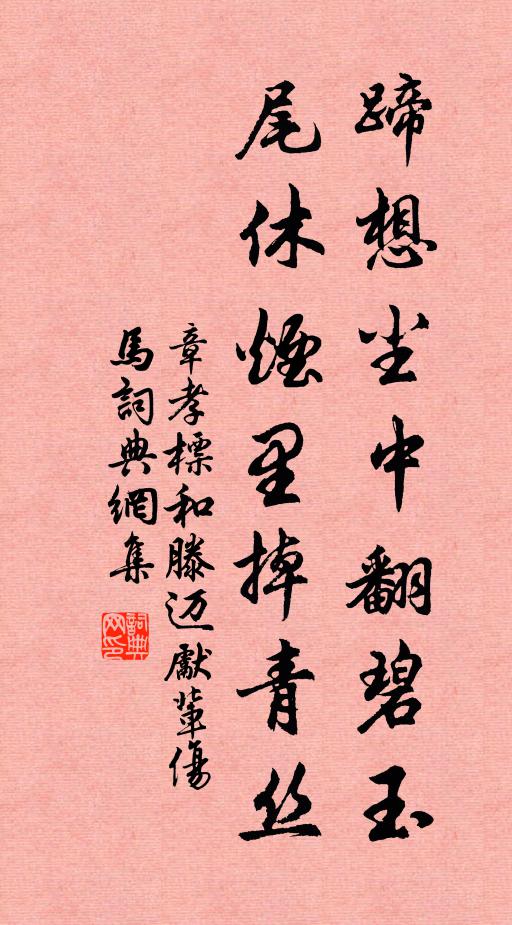 蹄想尘中翻碧玉
尾休煙里掉青丝
章孝標和滕迈獻輦傷
馬詞典網集
詞典
网印